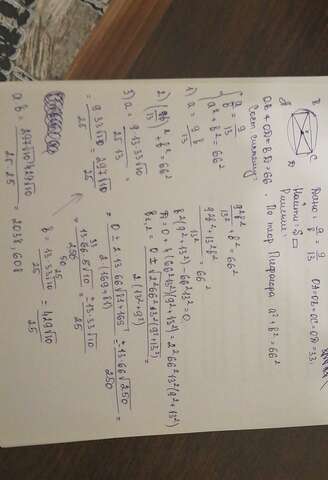 B C
A D
Дано: a/b = 9/13 OA=OB=OC=OD=33.
Найти: S▭
Решение:
OB+OD=BD=66. По теор Пифагора a²+b²=66²
Сост систему:
{ a/b = 9/13
a²+b²=66²
1) a = 9b/13
2) (9b/13)²+b²=66²
9²b²/13² + b² = 66²
9²b²+13²b²/13² = 66²
b²(9²+13²)-66²13²=0
D=0+4(66²13²)(9²+13²)=2²66²13²(9²+13²)
b₁,₂ = 0±√2²66²13²(9²+13²) / 2(13²+9²) =
= 0±2·13·66√81+169 / 2(169+81) = ±13·66√250 / 250 =
= ±13·66·5√10 / 250 = ±13·33√10 / 25
b = 13·33√10 / 25 = 429√10 / 25
3) a = 9·13·33√10 / 25·13 =
= 9·33√10 / 25 = 297√10 / 25
ab = 297√10·429√10 / 25·25 = 2038,608